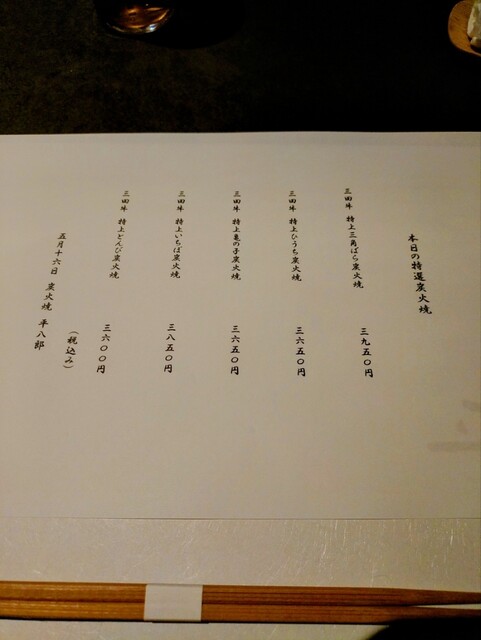 本日の特選炭火焼
三田牛 特上三角ばら炭火焼 三九五〇円
三田牛 特上ひうち炭火焼 三六五〇円
三田牛 特上亀の子炭火焼 三六五〇円
三田牛 特上いちぼ炭火焼 三八五〇円
三田牛 特上とんび炭火焼 三六〇〇円
(税込み)
五月十六日 炭火焼 平八郎